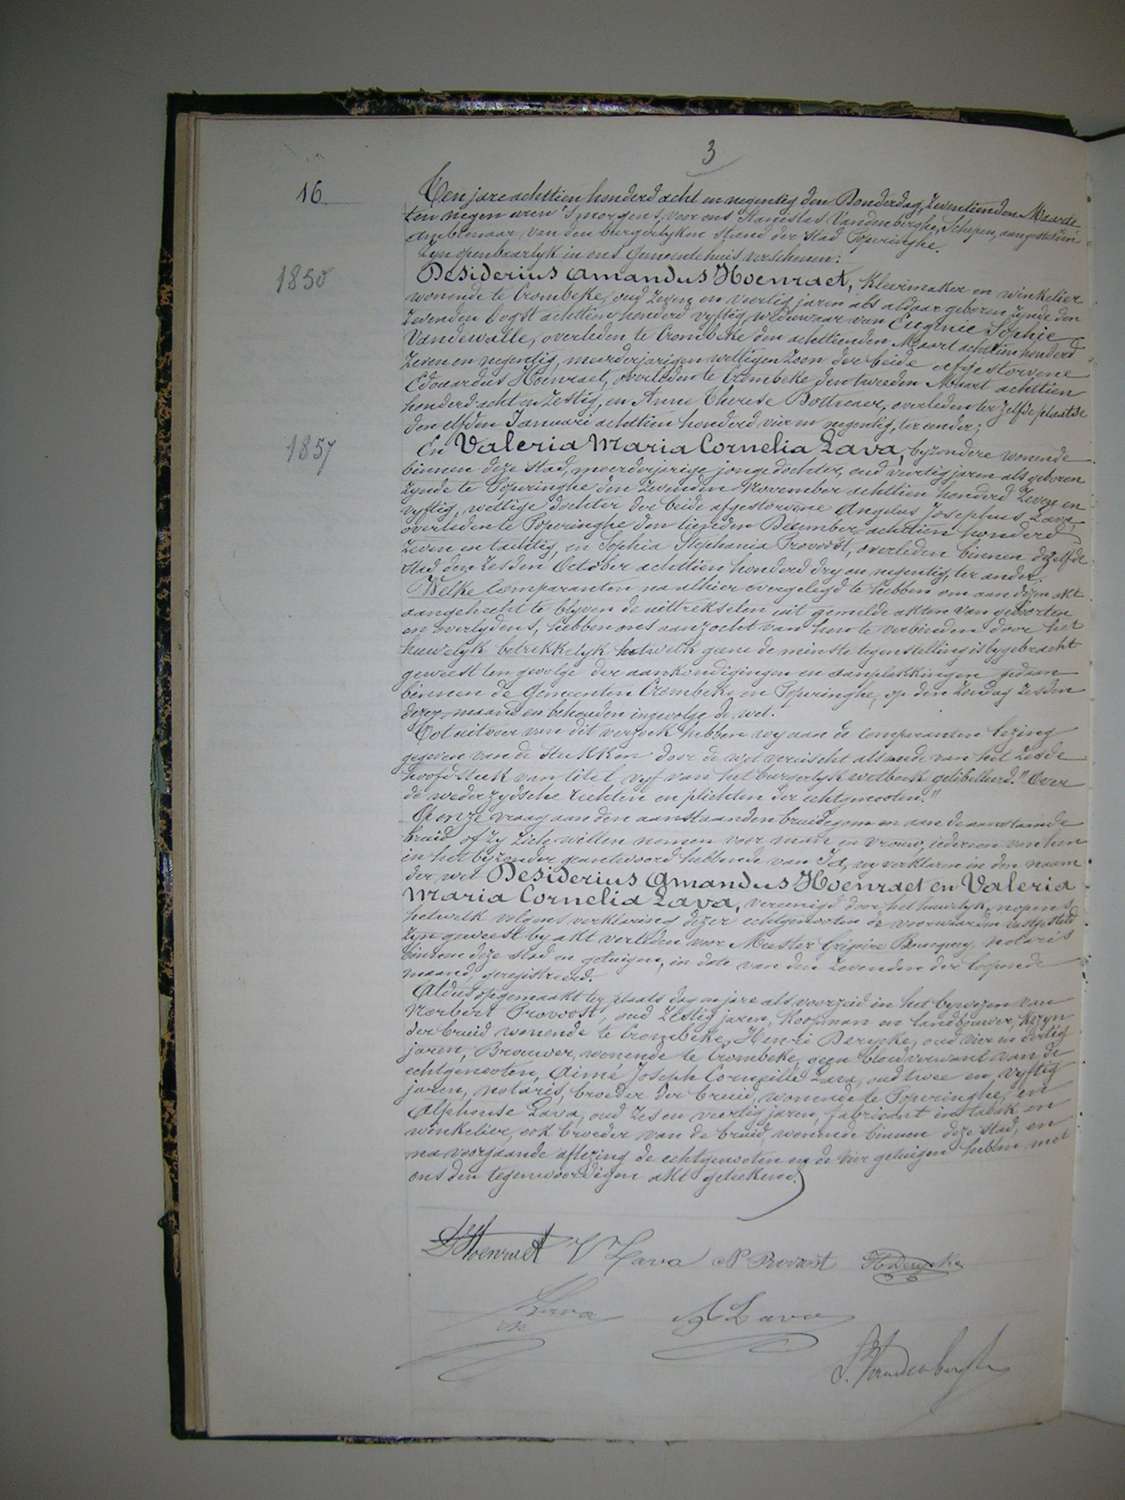 3
16
Ten jare achttien honderd acht en negentig den Donderdag, zeventienden Maarte
ten negen uren 's morgens, voor ons Stanislas Vandenberghe, Schepen, aangestelden
ambtenaar van den burgerlyken stand der stad Poperinghe,
zyn openbaarlyk in ons Gemeentehuis verschenen:
1850
Desiderius Amandus Hoenraet, kleermaker en winkelier
wonende te Crombeke, oud zeven en veertig jaren als aldaar geboren zynde den
zevenden Oogst achttien honderd vyftig, weduwaar van Eugenie Sophie
Vandewalle, overleden te Crombeke den achttienden Maart achttien honderd
zeven en negentig, meerderjarigen wettigen zoon der beide afgestorvene
Edouardus Hoenraet, overleden te Crombeke den tweeden Maart achttien
honderd acht en zestig, en Anne Therese Botteau, overleden ter zelfde plaatse
den elfden Januari achttien honderd vier en negentig, ter eender;
1857
En Valeria Maria Cornelia Lava, byzondere wonende
binnen deze stad, meerderjarige jonge dochter, oud veertig jaren als geboren
zynde te Poperinghe den zevenden November achttien honderd zeven en
vyftig, wettige dochter der beide afgestorvene Angelus Josephus Lava,
overleden te Poperinghe den tienden December achttien honderd
zeven en tachtig, en Sophia Stephania Provoost, overleden binnen dezelfde
stad den zesden October achttien honderd dry en negentig, ter ander.
Welke Comparanten na alhier overgelegd te hebben om aan dezen akt
aangehecht te blyven de uittrekselen uit gemelde akten van geboorten
en overlydens, hebben ons aanzocht van hun te verbinden door het
huwelyk betrekkelyk hetwelk geene de minste tegenstelling is bygebracht
geweest ten gevolge der aankondigingen en aanplakkingen gedaan
binnen de Gemeenten Crombeke en Poperinghe, op den Zondag zesden
dezer maand en behouden ingevolge de wet.
Tot uitvoer van dit verzoek hebben wy aan de Comparanten lezing
gegeven van de stukken door de wet vereischt alsmede van het zesde
hoofdstuk van titel vyf van het burgerlyk wetboek getituleerd: "Over
de wederzydsche rechten en plichten der echtgenooten."
Op onze vraag aan den aanstaanden bruidegom en aan de aanstaande
bruid, of zy zich willen nemen voor man en vrouw, iedereen van hun
in het byzonder geantwoord hebbende van Ja, wy verklaren in den naam
der wet Desiderius Amandus Hoenraet en Valeria
Maria Cornelia Lava, vereenigd door het huwelyk, nopens
hetwelk volgens verklaring dezer echtgenooten de voorwaarden vastgesteld
zyn geweest by akt verleden voor Meester notaris
binnen deze stad en getuigen, in date van den zevenden der loopende
maand, geregistreerd.
Aldus opgemaakt ter plaats dag en jare als voorzeid in het bywezen van
Norbert Provoost, oud zestig jaren, koopman en landbouwer, kozyn
der bruid wonende te Crombeke, Henri Derycke, oud vier en dertig
jaren, Brouwer, wonende te Crombeke, geen bloedverwant van de
echtgenooten, Aimé Joseph Corneille Lava, oud twee en vyftig
jaren, notaris, broeder der bruid, wonende te Poperinghe, en
Alphonse Lava, oud zes en veertig jaren, fabricant in tabak en
winkelier, ook broeder van de bruid, wonende binnen deze stad, en
na voorgaande aflezing de echtgenooten en de vier getuigen hebben met
ons den tegenwoordigen akt geteekend.
D Hoenraet V Lava N Provoost H Derycke
Lava A Lava
S. Vandenberghe